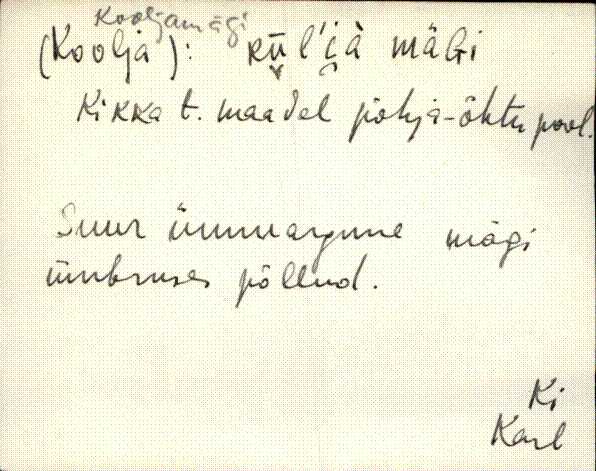 Kooljamägi
(Koolja): kūl'i̯à mäGi
Kikka t. maadel põhja-õhtu pool.
Suur ümmargune mägi
ümbruses põllud.
Ki
Karl